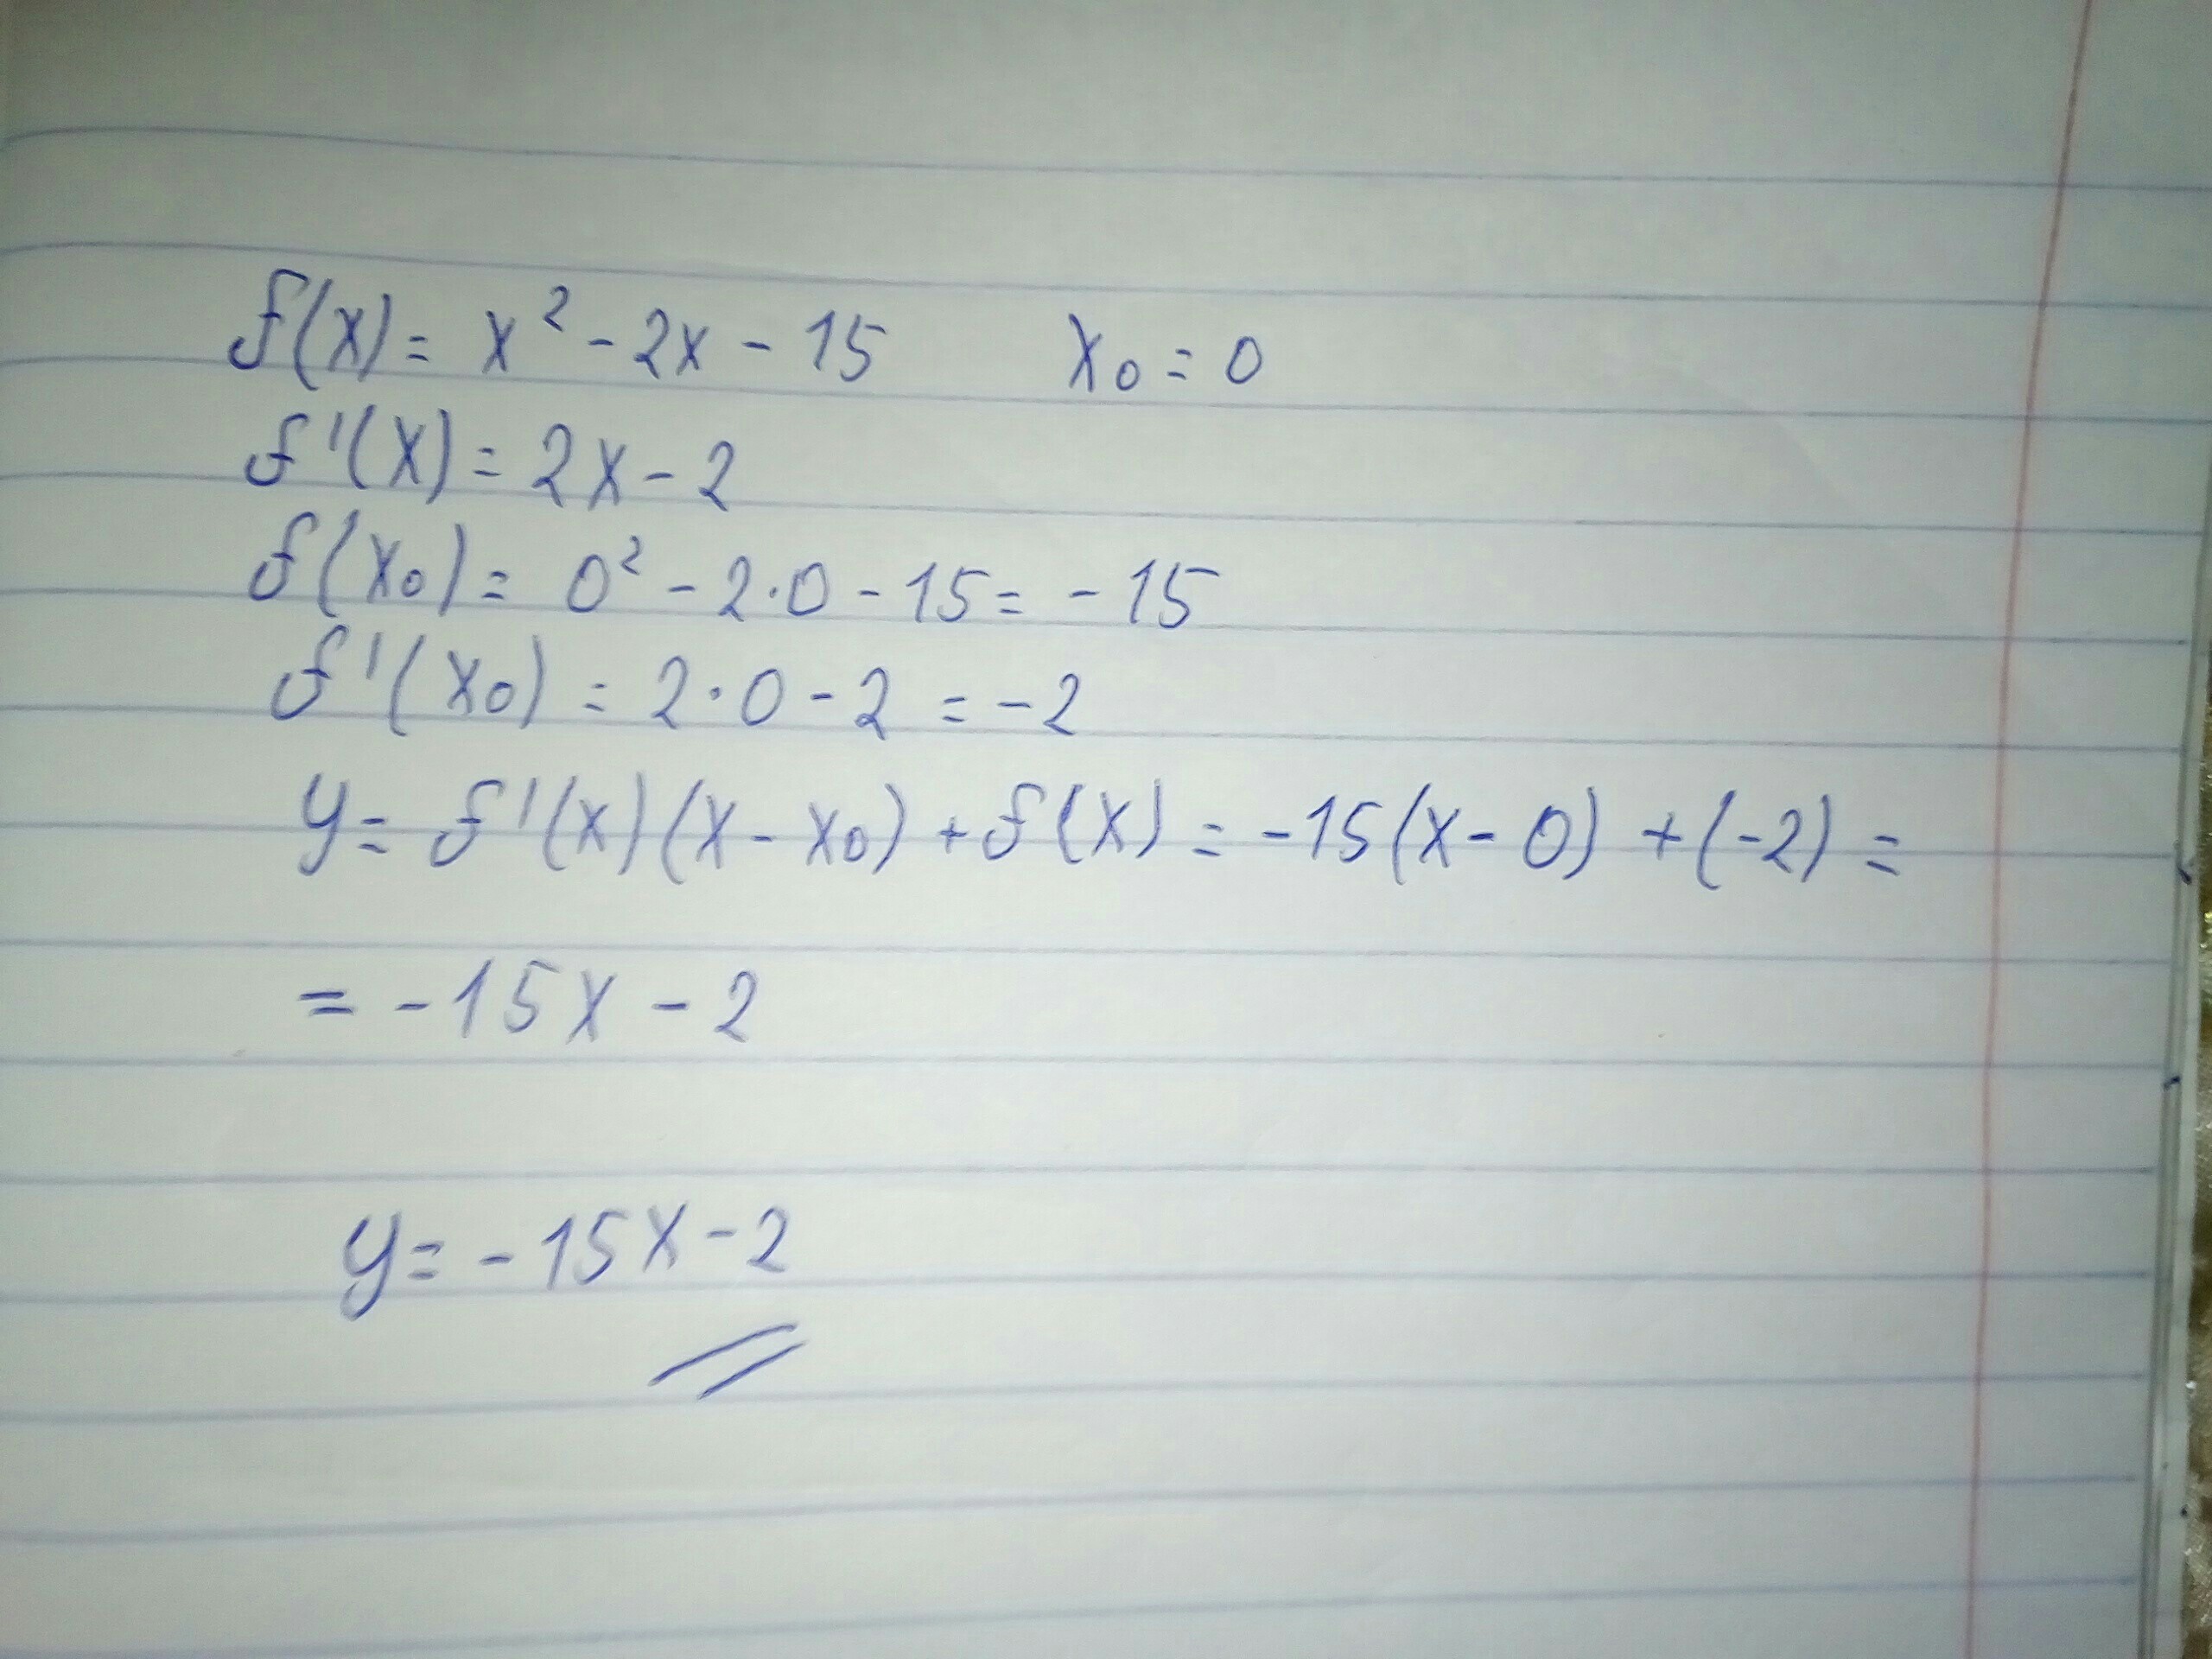 f(x) = x² - 2x - 15 x₀ = 0
f'(x) = 2x - 2
f(x₀) = 0² - 2·0 - 15 = -15
f'(x₀) = 2·0 - 2 = -2
y = f'(x)(x - x₀) + f(x) = -15(x - 0) + (-2) =
= -15x - 2
y = -15x - 2